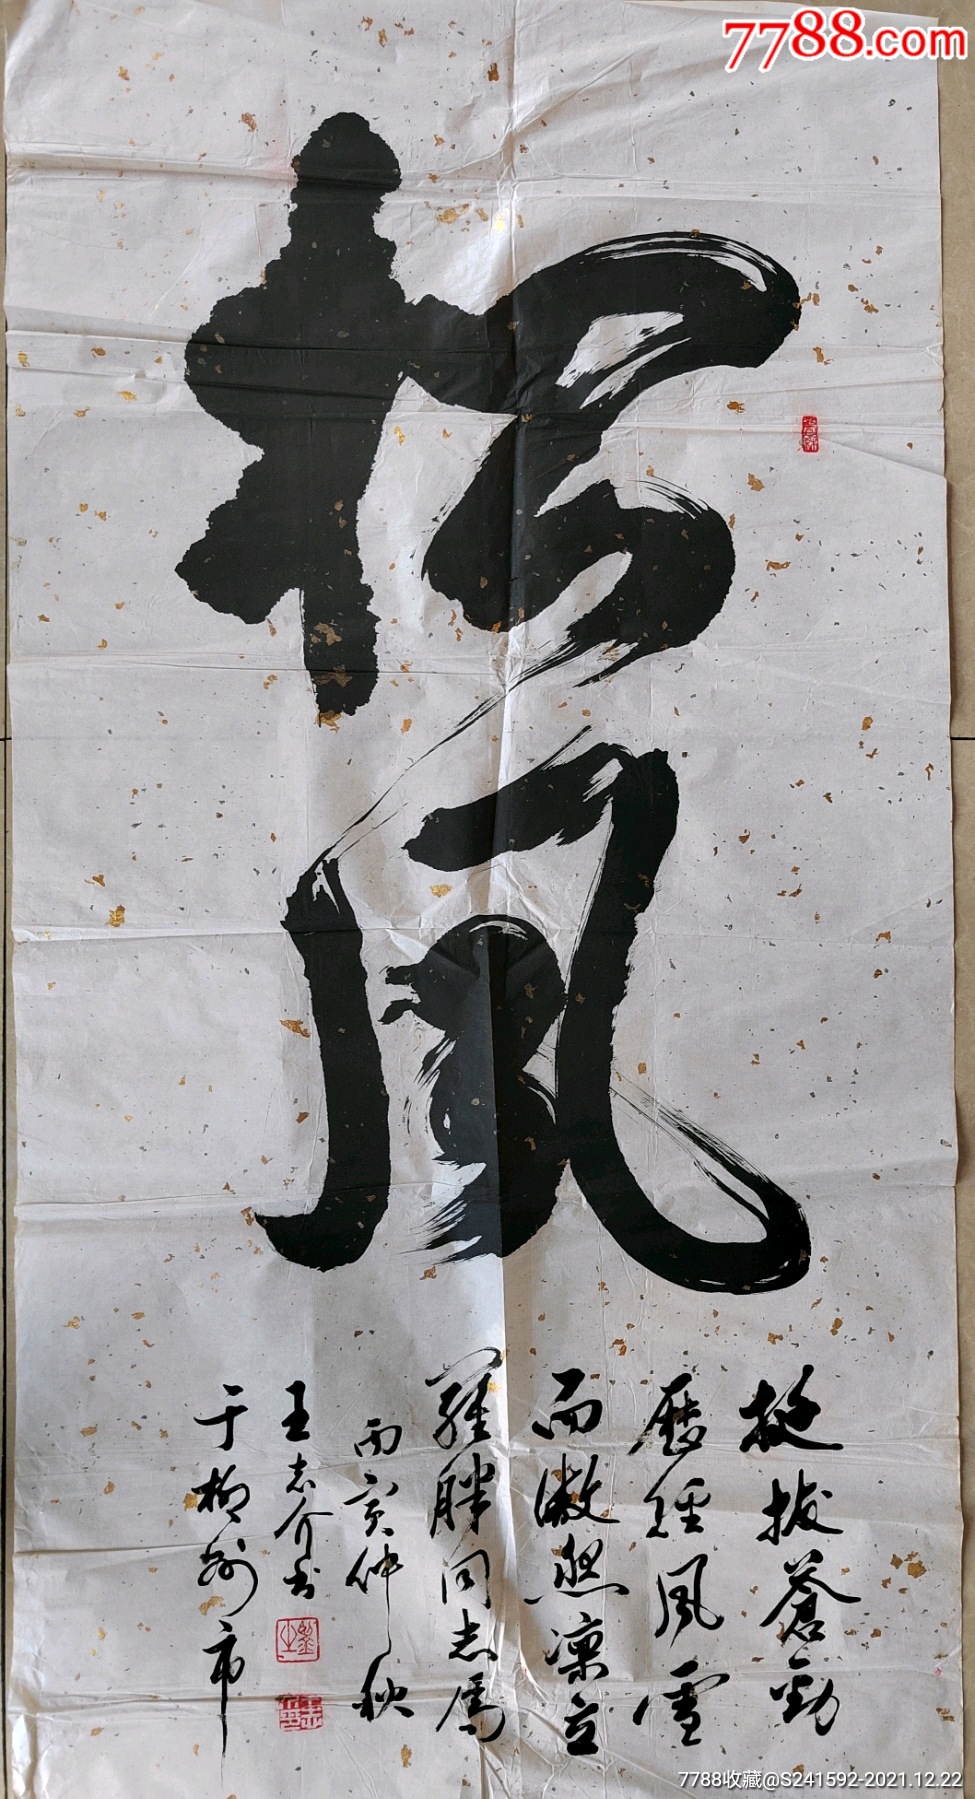 7788.com
松风
挺拔蒼勁
歷經风雪
而傲然凛立
羅胖同志属
丙寅仲秋
王志介书
于柳州市
7788收藏@S241592-2021.12.22